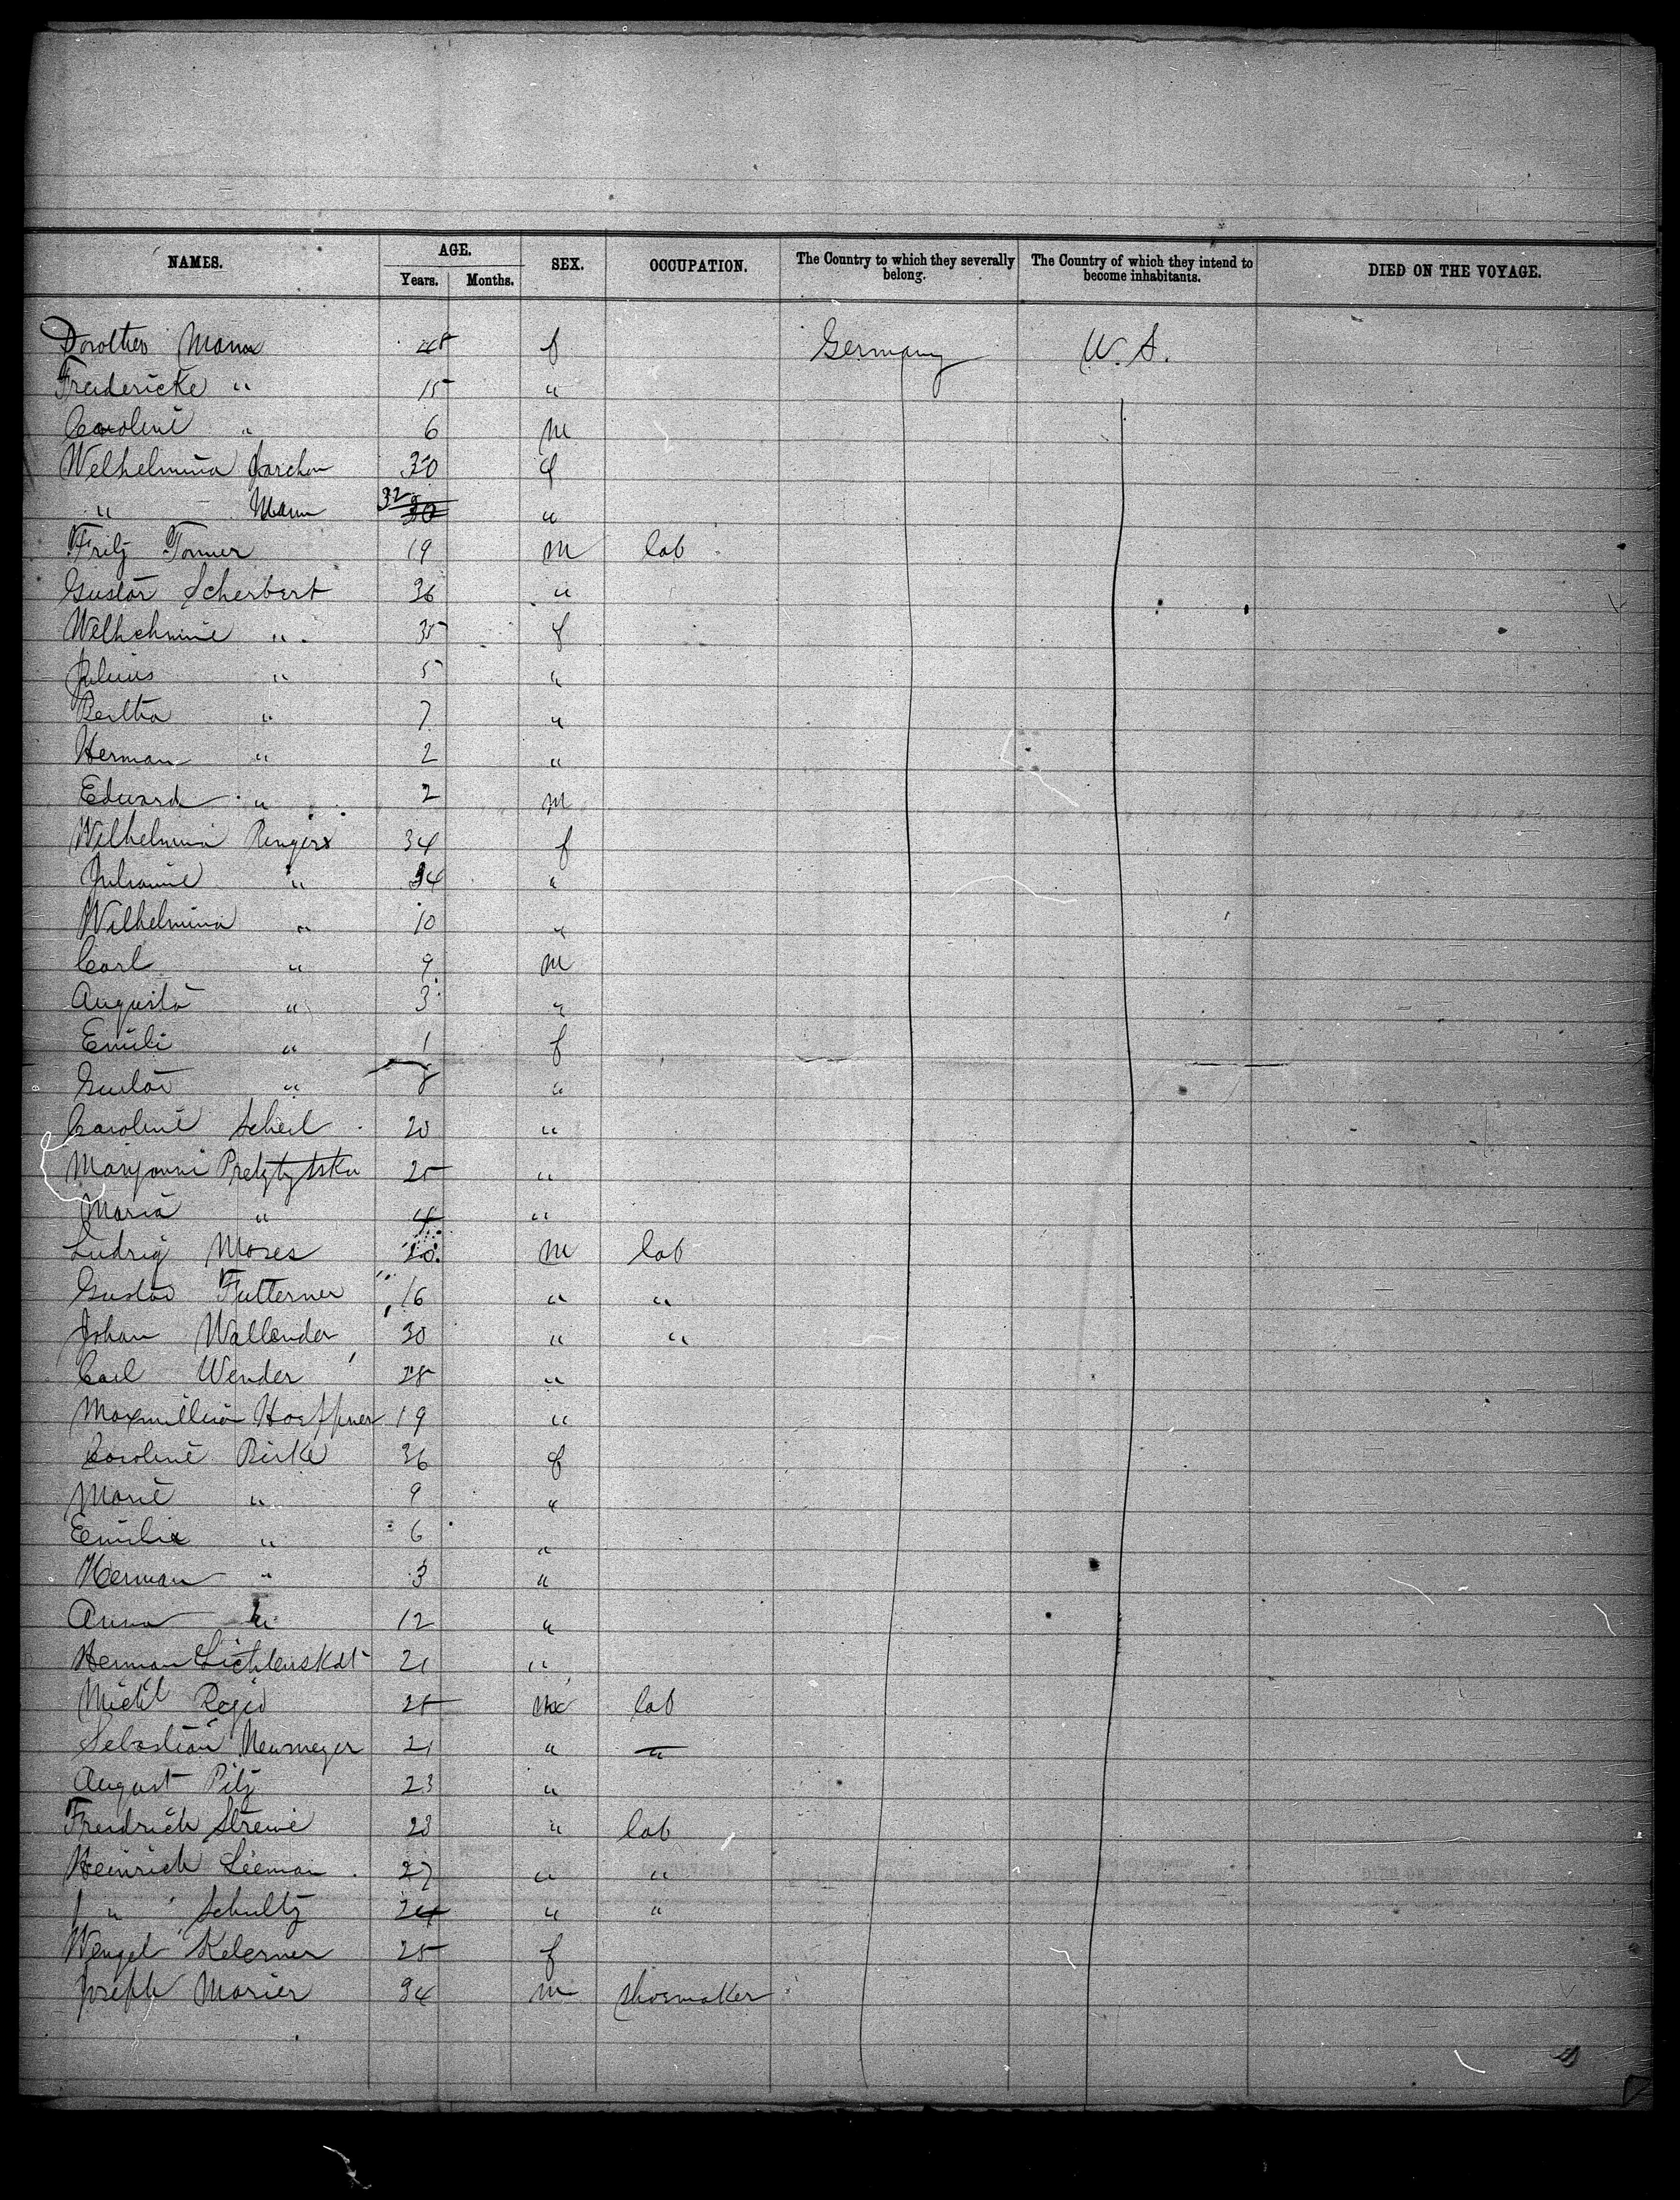 NAMES. AGE. SEX. OCCUPATION. The Country to which they severally belong. The Country of which they intend to become inhabitants. DIED ON THE VOYAGE.
Years. Months.
Dorothea Mann 45 f Germany U.S.
Freidericke " 15 "
Caroline " 6 m
Welhelmina Jarchon 30 f
" Mann 32 30 "
Fritz Tonner 19 m lab
Gustav Scherbert 36 "
Welhelmine " 35 f
Julius " 5 "
Bertha " 7 "
Herman " 2 "
Edward " 2 m
Wilhelmina Rengers 34 f
Julianne " 34 "
Wilhelmina " 10 "
Carl " 9 m
Augusta " 3 "
Emili " 1 f
Gustav " "
Caroline Scheil 20 "
Maryanni 25 "
Maria " 4 "
Ludvig Moses 20 m lab
Gustav Futterner 16 " "
Johan Wallender 30 " "
Carl Wender 28 "
Maxmillian Hoeffner 19 "
Caroline Birke 36 f
Marie " 9 "
Emilie " 6 "
Herman " 3 "
Anna " 12 "
Herman Lichtenskdt 21 "
Mich'l 25 m lab
Sebastian Neumeyer 21 " "
August Pilz 23 "
Freidrich Strewe 23 " lab
Heinrich Lieman 27 " "
" Schultz 24 " "
Wenzel Kelerner 25 f
Joseph Marier 34 m shoemaker